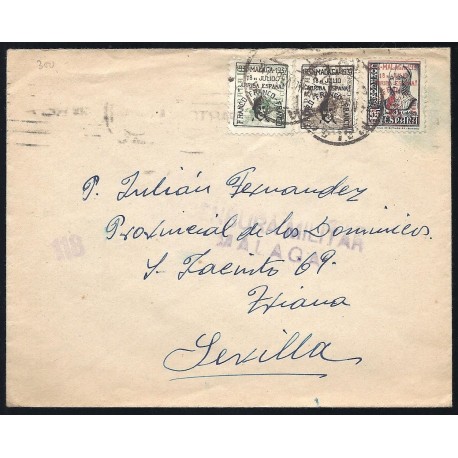 300
MALAGA
18 JULIO
ARRIBA ESPAÑA!
FRANCO
MALAGA
18 JULIO
ARRIBA ESPAÑA!
FRANCO
MALAGA
18 JULIO
ESPAÑA
P. Julián Fernandez
Provincial de los Dominicos.
CENSURA MILITAR
MALAGA
118
S. Jacinto 69.
Triana
Sevilla